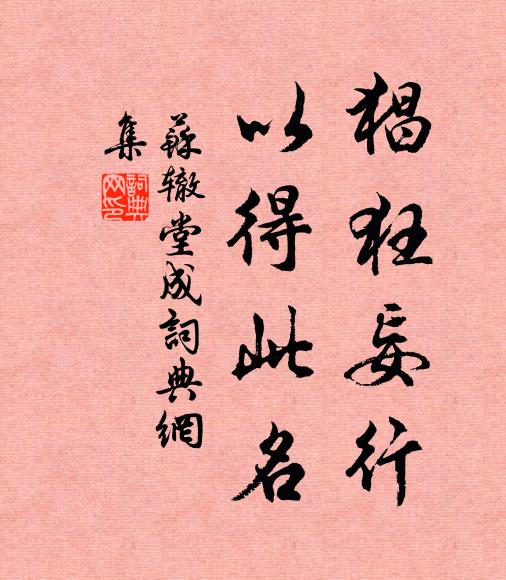 猖狂妄行
以得此名
蘇辙堂成詞典網
集
詞典
网印